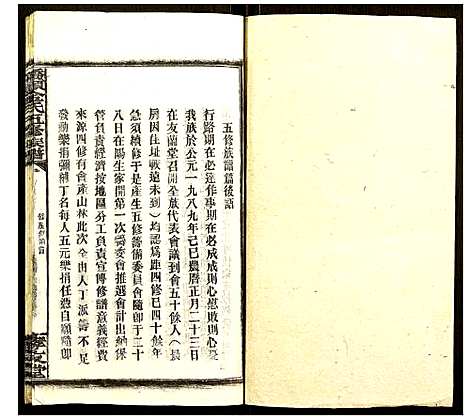 五修族譜篇後語
行路期在必達作事期在必成成則心慰敗則心憂
我族於公元一九八九年己巳農曆正月二十三日
在友蘭堂召開全族代表會議到會五十餘人(長
房因住址載遠未到)均認為距四修已四十餘年
急須續修于是產生五修籌備委員會隨卽于二十
八日在陽生家開第一次籌委會推選會計出納保
管負責經濟按地區分工負責宣傳修譜意義經費
來源四修有會產山林此次全由人丁派籌不足
發動樂捐彌補丁名每人五元樂捐任憑自願隨卽
五修族譜
堂